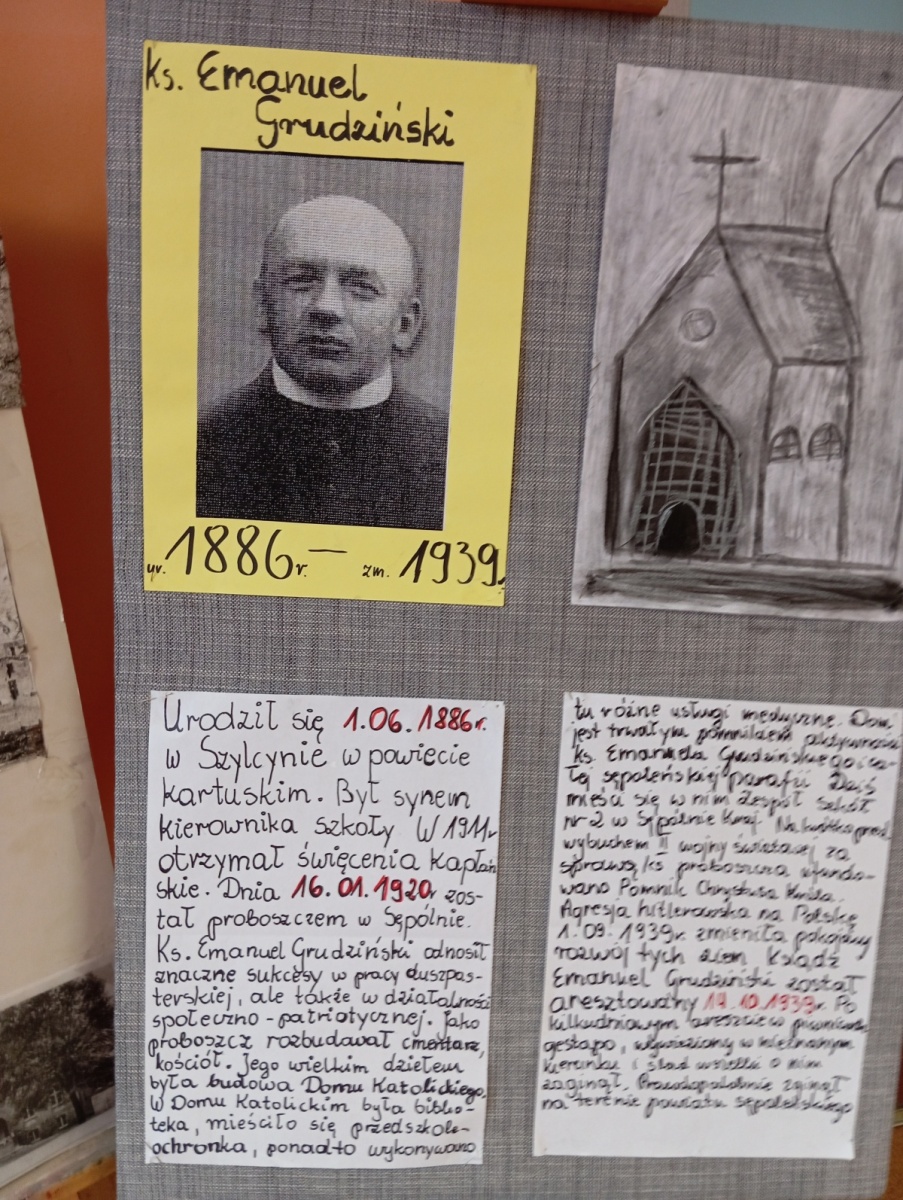 ks. Emanuel
Grudziński
ur. 1886r. — zm. 1939r.
Urodził się 1.06.1886r.
w Szylcynie w powiecie
kartuskim. Był synem
kierownika szkoły W 1911r
otrzymał święcenia kapłań
skie. Dnia 16.01.1920r zos-
tał proboszczem w Sępólnie.
Ks. Emanuel Grudziński odnosił
znaczne sukcesy w pracy duszpas-
terskiej, ale także w działalności
społeczno-patriotycznej. Jako
proboszcz rozbudawał cmentarz,
kościół. Jego wielkim dziełem
była budowa Domu Katolickiego.
W Domu Katolickim była biblio-
teka, mieściło się przedszkole-
ochronka, ponadto wykonywano
tu różne usługi medyczne. Dom
jest trwałym pomnikiem aktywności
ks. Emanuela Grudzińskiego i ca-
łej sępoleńskiej parafii Dziś
mieści się w nim Zespół Szkół
nr 2 w Sępólnie Kraj. Na krótko przed
wybuchem II wojny światowej za
sprawą ks proboszcza ufundo-
wano Pomnik Chrystusa Króla.
Agresja hitlerowska na Polskę
1.09.1939r. zmieniła pokojowy
rozwój tych ziem Ksiądz
Emanuel Grudziński został
aresztowany .10.1939r. Po
kilkudniowym areszcie w piwnicach
gestapo, wywieziony w nieznanym
kierunku i ślad wszelki o nim
zaginął. Prawdopodobnie zginął
na terenie powiatu sępoleńskiego